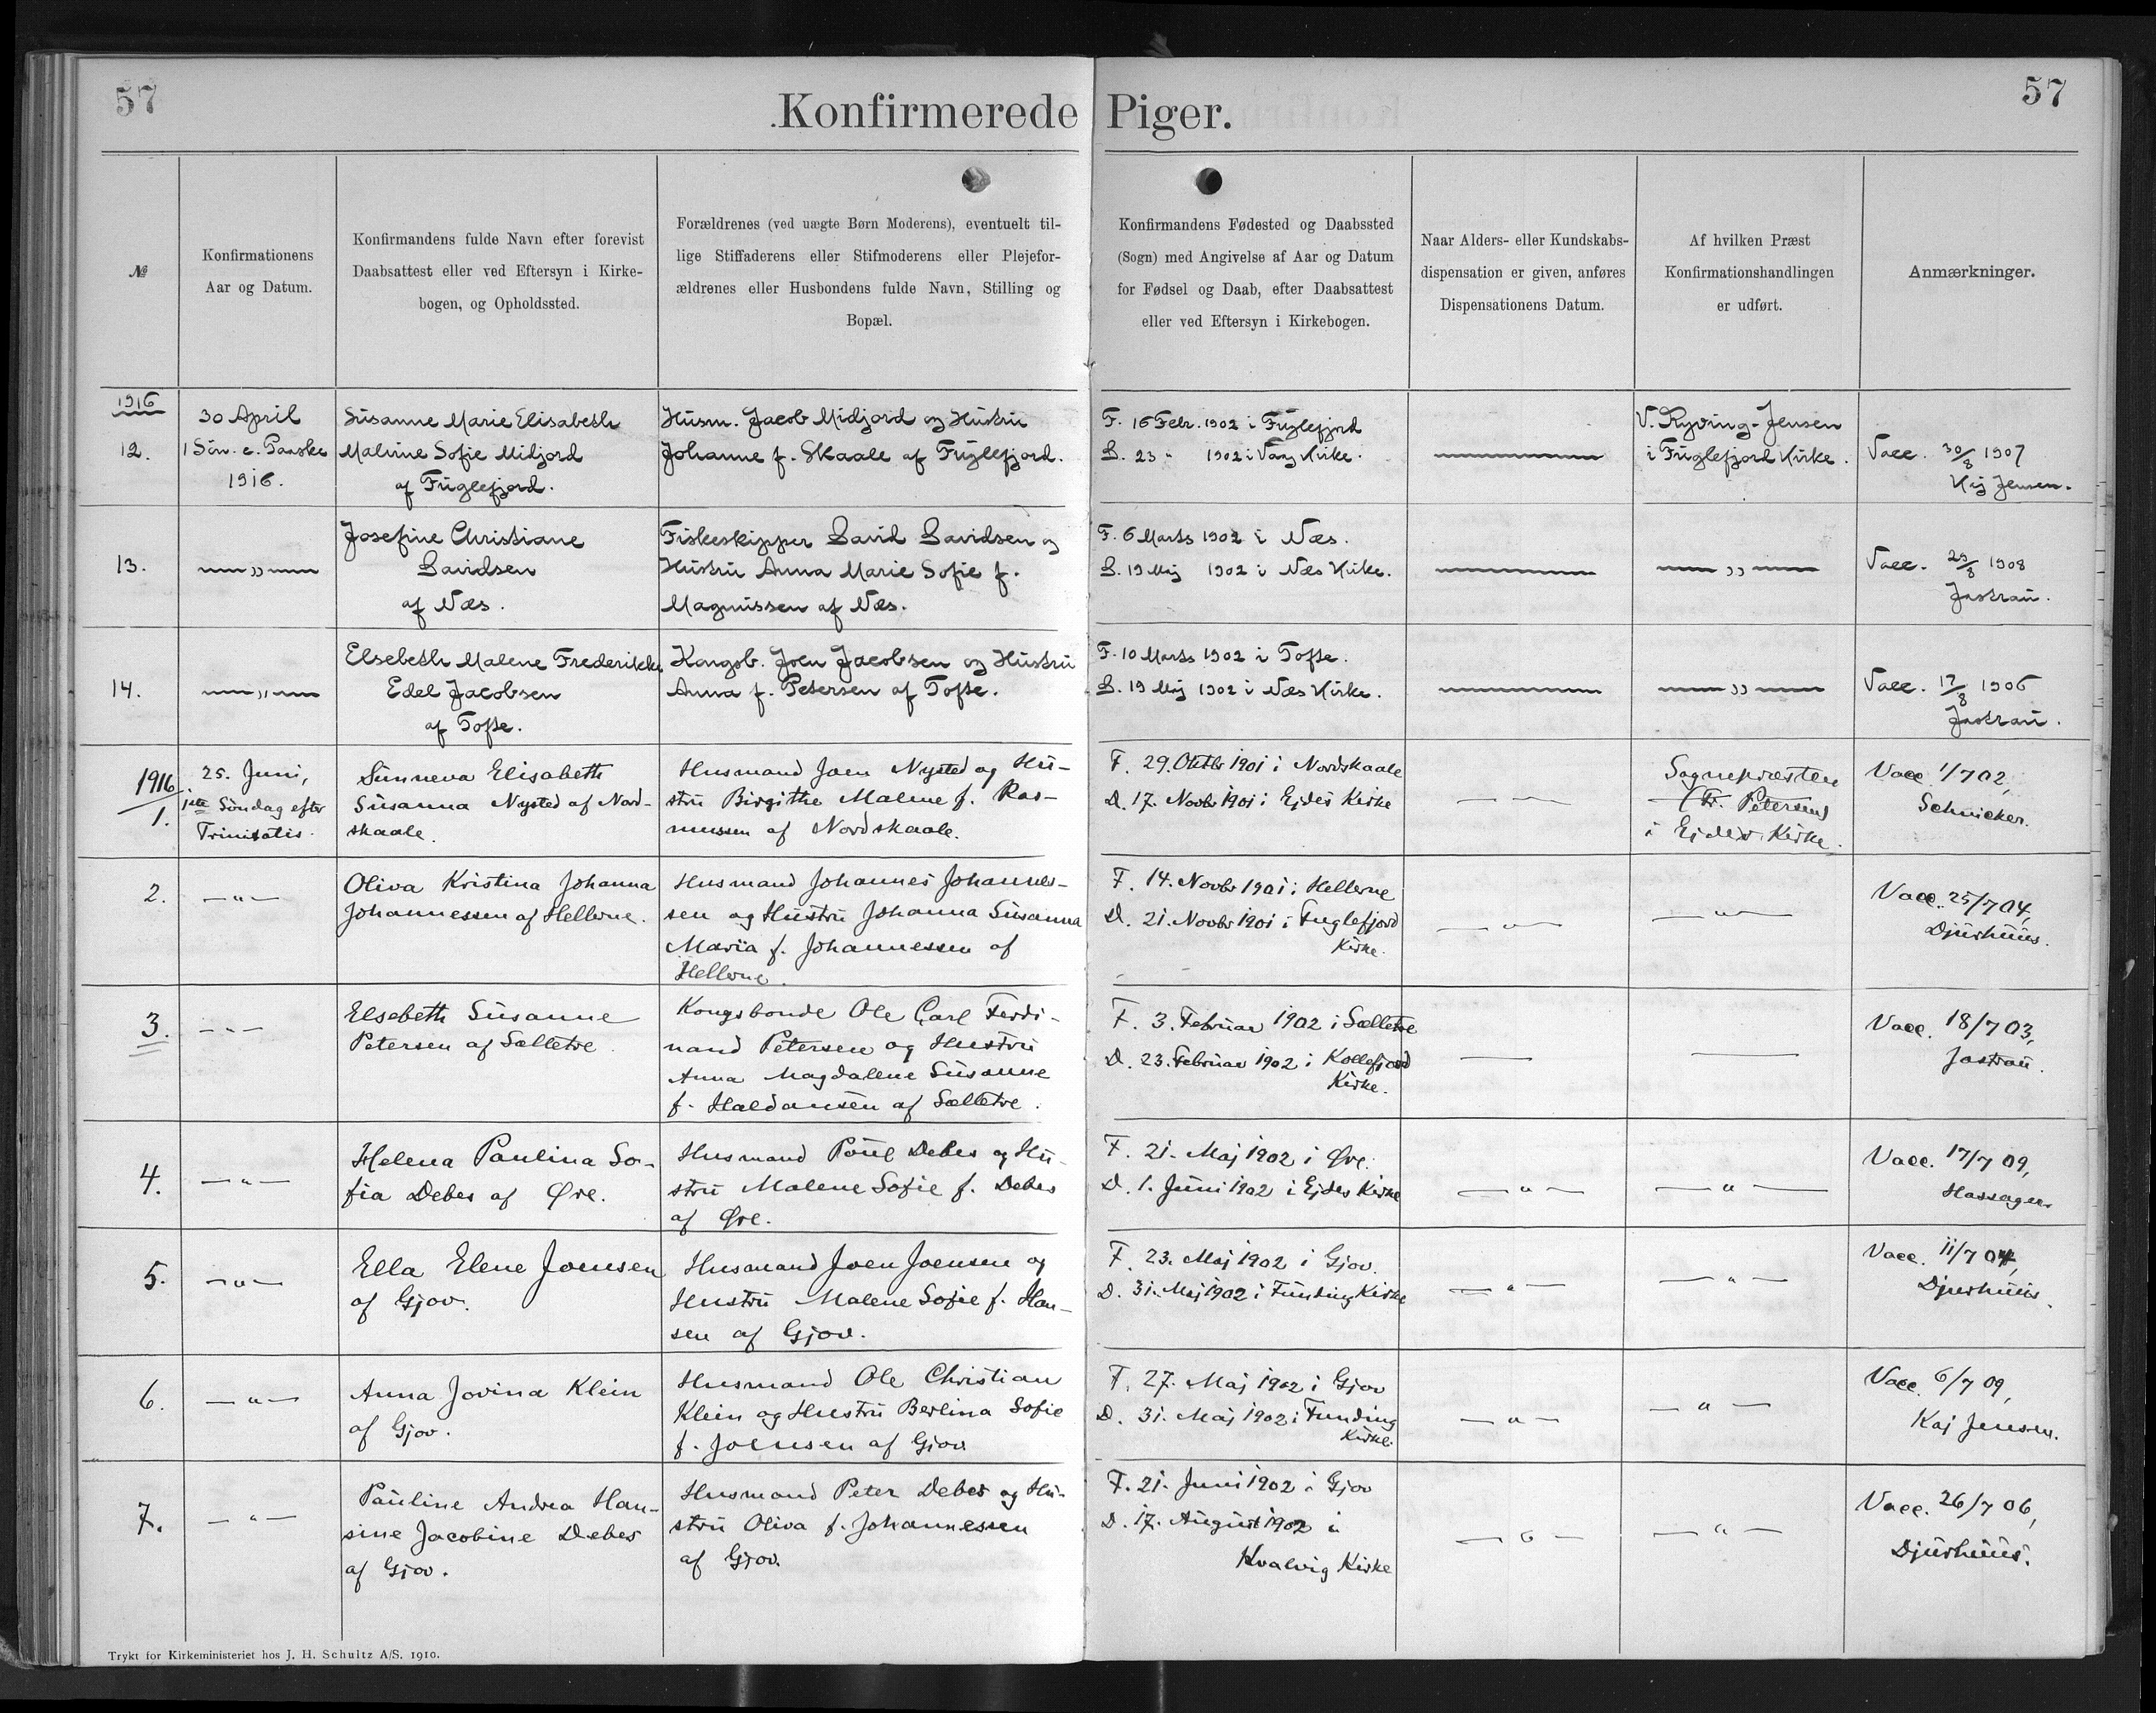 57
57
Konfirmerede Piger.
№
Konfirmationens
Aar og Datum.
Konfirmandens fulde Navn efter forevist
Daabsattest eller ved Eftersyn i Kirke-
bogen, og Opholdssted.
Forældrenes (ved uægte Børn Moderens), eventuelt til-
lige Stiffaderens eller Stifmoderens eller Plejefor-
ældrenes eller Husbondens fulde Navn, Stilling og
Bopæl.
Konfirmandens Fødested og Daabssted
(Sogn) med Angivelse af Aar og Datum
for Fødsel og Daab, efter Daabsattest
eller ved Eftersyn i Kirkebogen.
Naar Alders- eller Kundskabs-
dispensation er given, anføres
Dispensationens Datum.
Af hvilken Præst
Konfirmationshandlingen
er udført.
Anmærkninger.
1916
12.
30 April
1 Sön. e. Paaske
1916.
Susanne Marie Elisabeth
Malvine Sofie Midjord
af Fuglefjord.
Husm. Jacob Midjord og Hustru
Johanne f. Skaale af Fuglefjord.
F. 16 Febr. 1902 i Fuglefjord
D. 23 " 1902 i Vaag Kirke.
V. Ryving-Jensen
i Fuglefjord Kirke.
Vacc. 30/8 1907
Kaj Jensen.
13.
—„—
Josefine Christiane
Davidsen
af Næs.
Fiskeskipper David Davidsen og
Hustru Anna Marie Sofie f.
Magnussen af Næs.
F. 6 Marts 1902 i Næs.
D. 19 Maj 1902 i Næs Kirke.
—„—
Vacc. 29/8 1908
Jastrau.
14.
—„—
Elsebeth Malene Frederikke
Edel Jacobsen
af Tofte.
Kongsb. Joen Jacobsen og Hustru
Anna f. Petersen af Tofte.
F. 10 Marts 1902 i Tofte.
D. 19 Maj 1902 i Næs Kirke.
—„—
Vacc. 17/8 1906
Jastrau.
1916
1.
25. Juni,
1ste Söndag efter
Trinitatis.
Sunneva Elisabeth
Susanna Nysted af Nord-
skaale.
Husmand Joen Nysted og Hu-
stru Birgithe Malene f. Ras-
mussen af Nordskaale.
F. 29. Oktbr 1901 i Nordskaale
D. 17. Novbr 1901 i Ejdes Kirke
Sognepræsten
(Fr. Petersen)
i Ejdes Kirke.
Vacc. 1/7 02,
Schnicker.
2.
—"—
Oliva Kristina Johanna
Johannessen af Hellerne.
Husmand Johannes Johannes-
sen og Hustru Johanna Susanna
Maria f. Johannessen af
Hellerne.
F. 14. Novbr 1901 i Hellerne
D. 21. Novbr 1901 i Fuglefjord
Kirke.
—"—
—"—
Vacc. 25/7 04,
Djurhuus.
3.
—"—
Elsebeth Susanne
Petersen af Selletræ
Kongsbonde Ole Carl Ferdi-
nand Petersen og Hustru
Anna Magdalene Susanne
f. Haldansen af Selletræ.
F. 3. Februar 1902 i Selletræ
D. 23. Februar 1902 i Kollefjord
Kirke.
Vacc. 18/7 03,
Jastrau.
4.
—"—
Helena Paulina So-
fia Debes af Øre.
Husmand Poul Debes og Hu-
stru Malene Sofie f. Debes
af Øre.
F. 21. Maj 1902 i Øre.
D. 1. Juni 1902 i Ejdes Kirke
—"—
—"—
Vacc. 17/7 09,
Hassager.
5.
—"—
Ella Elene Joensen
af Gjov.
Husmand Joen Joensen og
Hustru Malene Sofie f. Han-
sen af Gjov.
F. 23. Maj 1902 i Gjov.
D. 31. Maj 1902 i Funding Kirke
—"—
—"—
Vacc. 11/7 04,
Djurhuus.
6.
—"—
Anna Jovina Klein
af Gjov.
Husmand Ole Christian
Klein og Hustru Berlina Sofie
f. Joensen af Gjov.
F. 27. Maj 1902 i Gjov
D. 31. Maj 1902 i Funding
Kirke.
—"—
—"—
Vacc. 6/7 09,
Kaj Jensen.
7.
—"—
Pauline Andrea Han-
sine Jacobine Debes
af Gjov.
Husmand Peter Debes og Hu-
stru Oliva f. Johannessen
af Gjov.
F. 21. Juni 1902 i Gjov
D. 17. August 1902 i
Kvalvig Kirke
—"—
—"—
Vacc. 26/7 06,
Djurhuus.
Trykt for Kirkeministeriet hos J. H. Schultz A/S. 1910.